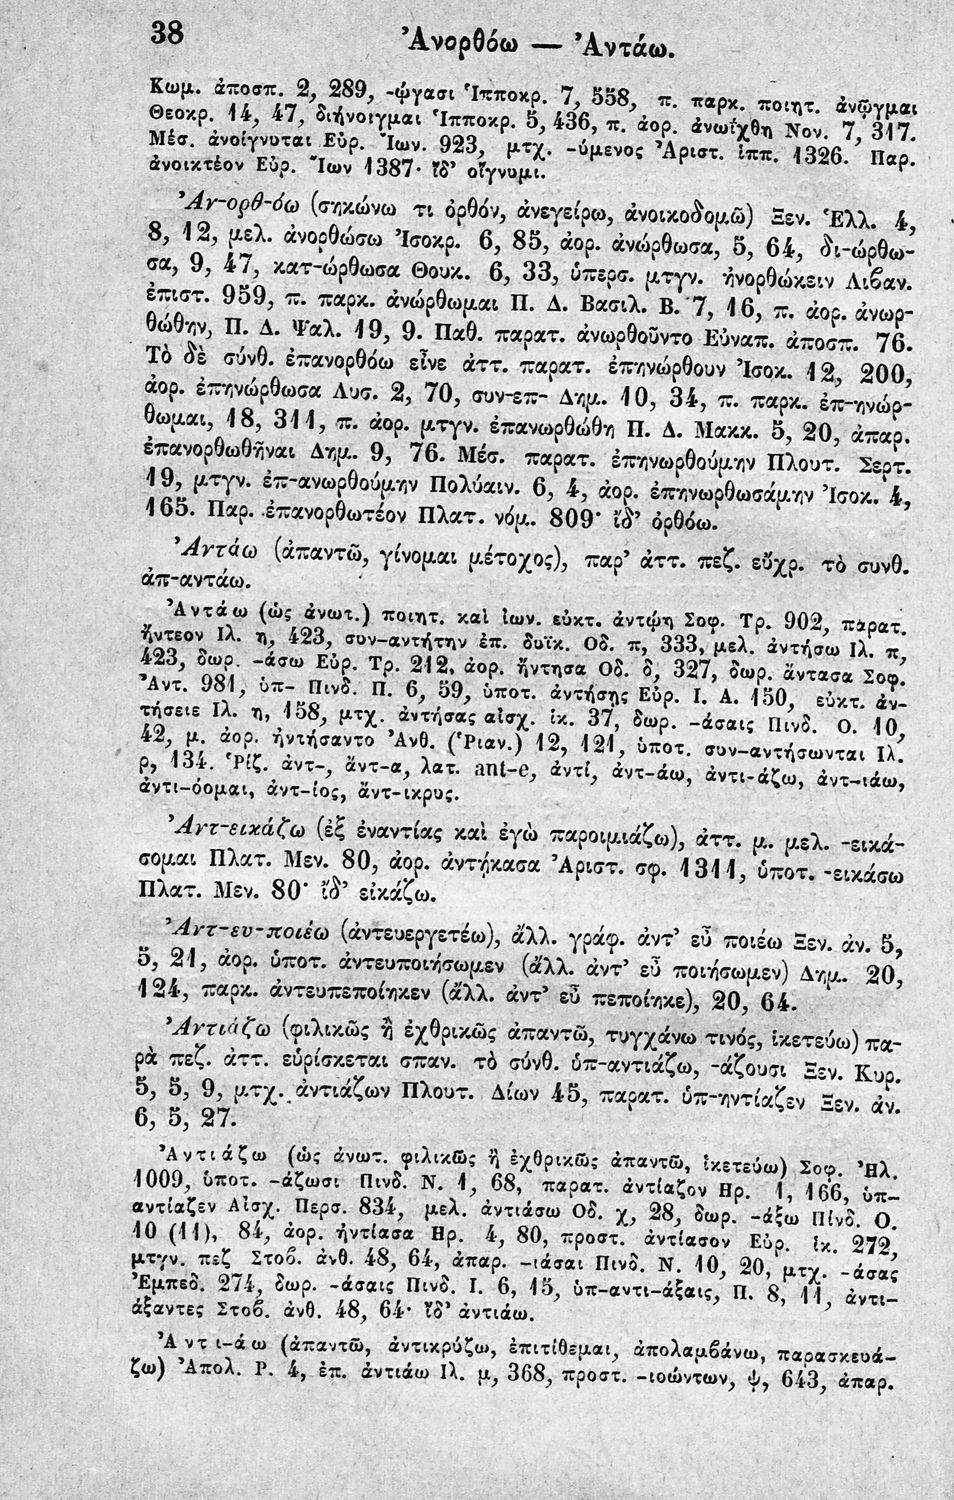 38
Ἀνορθόω — Ἀντάω.
Κωμ. ἀποσπ. 2, 289, -ῴγασι Ἱπποκρ. 7, 558, π. παρκ. ποιητ. ἀνῷγμαι
Θεοκρ. 14, 47, διήνοιγμαι Ἱπποκρ. 5, 436, π. ἀορ. ἀνωΐχθη Νον. 7, 317.
Μέσ. ἀνοίγνυται Εὐρ. Ἴων. 923, μτχ. -ύμενος Ἀριστ. ἱππ. 1326. Παρ.
ἀνοικτέον Εὐρ. Ἴων 1387· ἴδ’ οἴγνυμι.
Ἀν-ορθ-όω (σηκώνω τι ὀρθόν, ἀνεγείρω, ἀνοικοδομῶ) Ξεν. Ἑλλ. 4,
8, 12, μελ. ἀνορθώσω Ἰσοκρ. 6, 85, ἀορ. ἀνώρθωσα, 5, 64, δι-ώρθω-
σα, 9, 47, κατ-ώρθωσα Θουκ. 6, 33, ὑπερσ. μτγν. ἠνορθώκειν Λιβαν.
ἐπιστ. 959, π. παρκ. ἀνώρθωμαι Π. Δ. Βασιλ. Β. 7, 16, π. ἀορ. ἀνωρ-
θώθην, Π. Δ. Ψαλ. 19, 9. Παθ. παρατ. ἀνωρθοῦντο Εὐναπ. ἀποσπ. 76.
Τὸ δὲ σύνθ. ἐπανορθόω εἶνε ἀττ. παρατ. ἐπηνώρθουν Ἰσοκ. 12, 200,
ἀορ. ἐπηνώρθωσα Λυσ. 2, 70, συν-επ- Δημ. 10, 34, π. παρκ. ἐπ-ηνώρ-
θωμαι, 18, 311, π. ἀορ. μτγν. ἐπανωρθώθη Π. Δ. Μακκ. 5, 20, ἀπαρ.
ἐπανορθωθῆναι Δημ. 9, 76. Μέσ. παρατ. ἐπηνωρθούμην Πλουτ. Σερτ.
19, μτγν. ἐπ-ανωρθούμην Πολύαιν. 6, 4, ἀορ. ἐπηνωρθωσάμην Ἰσοκ. 4,
165. Παρ. ἐπανορθωτέον Πλατ. νόμ. 809· ἴδ’ ὀρθόω.
Ἀντάω (ἀπαντῶ, γίνομαι μέτοχος), παρ’ ἀττ. πεζ. εὔχρ. τὸ συνθ.
ἀπ-αντάω.
Ἀντάω (ὡς ἀνωτ.) ποιητ. καὶ ἰων. εὐκτ. ἀντῴη Σοφ. Τρ. 902, παρατ.
ἤντεον Ιλ. η, 423, συν-αντήτην ἐπ. δυϊκ. Οδ. π, 333, μελ. ἀντήσω Ιλ. π,
423, δωρ. -άσω Εὐρ. Τρ. 212, ἀορ. ἤντησα Οδ. δ, 327, δωρ. ἄντασα Σοφ.
Ἀντ. 981, ὑπ- Πινδ. Π. 6, 59, ὑποτ. ἀντήσῃς Εὐρ. Ι. Α. 150, εὐκτ. ἀν-
τήσειε Ιλ. η, 158, μτχ. ἀντήσας αἰσχ. ἱκ. 37, δωρ. -άσαις Πινδ. Ο. 10,
42, μ. ἀορ. ἠντήσαντο Ἀνθ. (Ῥιαν.) 12, 121, ὑποτ. συν-αντήσωνται Ιλ.
ρ, 134. Ῥίζ. ἀντ-, ἄντ-α, λατ. ant-e, ἀντί, ἀντ-άω, ἀντι-άζω, ἀντ-ιάω,
ἀντι-όομαι, ἀντ-ίος, ἄντ-ικρυς.
Ἀντ-εικάζω (ἐξ ἐναντίας καὶ ἐγὼ παροιμιάζω), ἀττ. μ. μελ. -εικά-
σομαι Πλατ. Μεν. 80, ἀορ. ἀντῄκασα Ἀριστ. σφ. 1311, ὑποτ. -εικάσω
Πλατ. Μεν. 80· ἴδ’ εἰκάζω.
Ἀντ-ευ-ποιέω (ἀντευεργετέω), ἄλλ. γράφ. ἀντ’ εὖ ποιέω Ξεν. ἀν. 5,
5, 21, ἀορ. ὑποτ. ἀντευποιήσωμεν (ἄλλ. ἀντ’ εὖ ποιήσωμεν) Δημ. 20,
124, παρκ. ἀντευπεποίηκεν (ἄλλ. ἀντ’ εὖ πεποίηκε), 20, 64.
Ἀντιάζω (φιλικῶς ἢ ἐχθρικῶς ἀπαντῶ, τυγχάνω τινός, ἱκετεύω) πα-
ρὰ πεζ. ἀττ. εὑρίσκεται σπαν. τὸ σύνθ. ὑπ-αντιάζω, -άζουσι Ξεν. Κυρ.
5, 5, 9, μτχ. ἀντιάζων Πλουτ. Δίων 45, παρατ. ὑπ-ηντίαζεν Ξεν. ἀν.
6, 5, 27.
Ἀντιάζω (ὡς ἀνωτ. φιλικῶς ἢ ἐχθρικῶς ἀπαντῶ, ἱκετεύω) Σοφ. Ἠλ.
1009, ὑποτ. -άζωσι Πινδ. Ν. 1, 68, παρατ. ἀντίαζον Ηρ. 1, 166, ὑπ-
αντίαζεν Αἰσχ. Περσ. 834, μελ. ἀντιάσω Οδ. χ, 28, δωρ. -άξω Πίνδ. Ο.
10 (11), 84, ἀορ. ἠντίασα Ηρ. 4, 80, προστ. ἀντίασον Εὐρ. ἱκ. 272,
μτγν. πεζ Στοβ. ἀνθ. 48, 64, ἀπαρ. -ιάσαι Πινδ. Ν. 10, 20, μτχ. -άσας
Ἐμπεδ. 274, δωρ. -άσαις Πινδ. Ι. 6, 15, ὑπ-αντι-άξαις, Π. 8, 11, ἀντι-
άξαντες Στοβ. ἀνθ. 48, 64· ἴδ’ ἀντιάω.
Ἀντι-άω (ἀπαντῶ, ἀντικρύζω, ἐπιτίθεμαι, ἀπολαμβάνω, παρασκευά-
ζω) Ἀπολ. Ρ. 4, ἐπ. ἀντιάω Ιλ. μ, 368, προστ. -ιοώντων, ψ, 643, ἀπαρ.